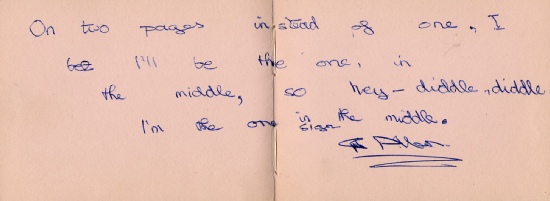 On two pages instead of one, I
I'll be the one, in
the middle, so hey - diddle, diddle
I'm the one in the middle.
sign